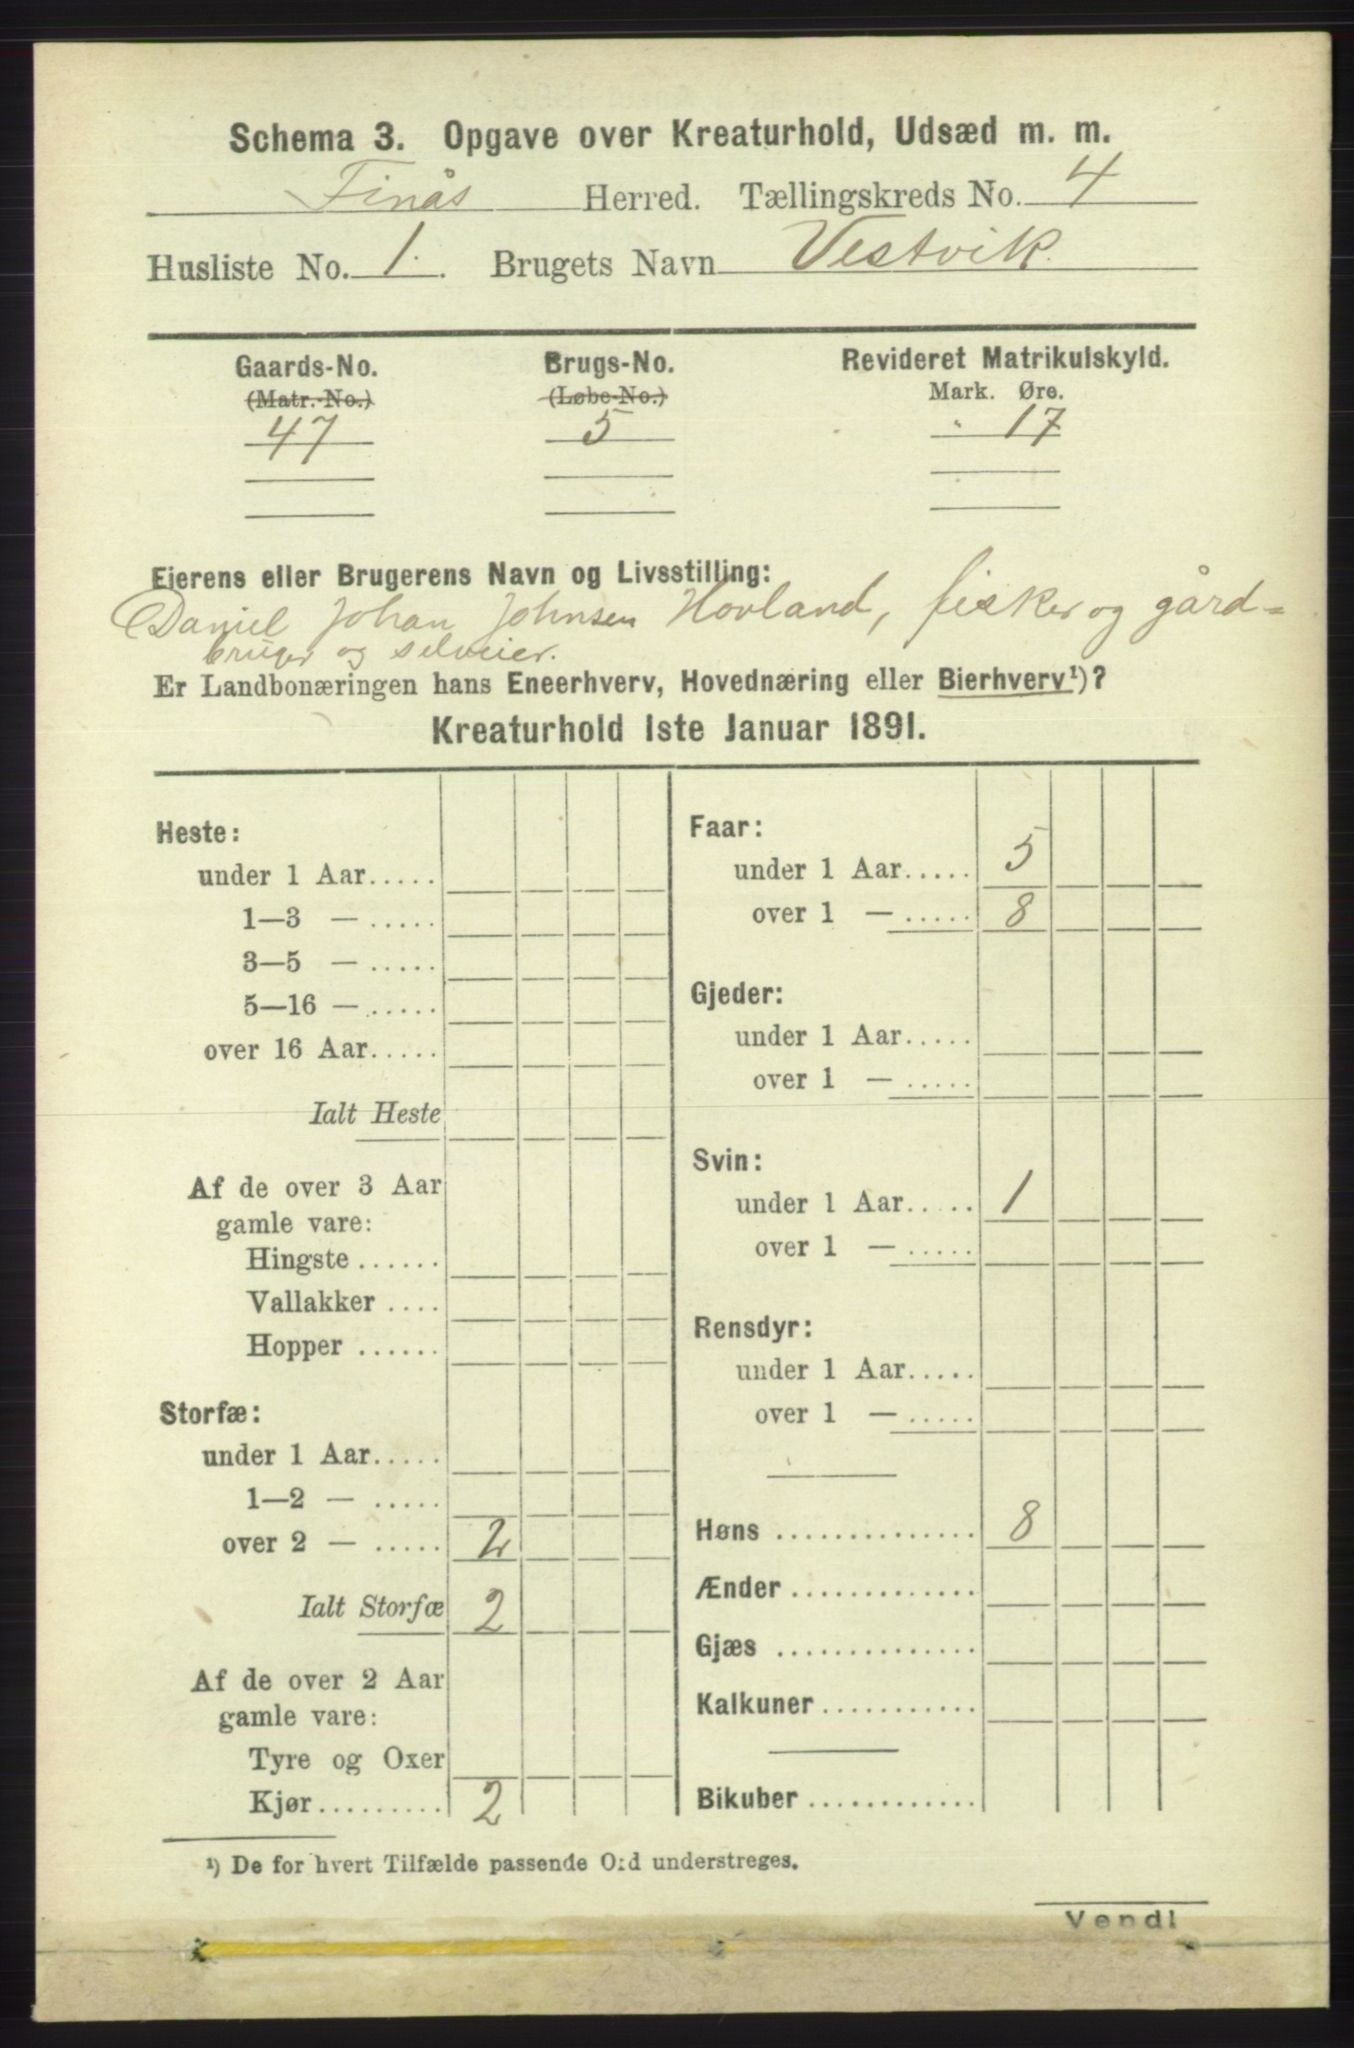 Schema 3. Opgave over Kreaturhold, Udsæd m. m.
Finås Herred. Tællingskreds No. 4
Husliste No. 1. Brugets Navn Vestvik.
Gaards-No. Brugs-No. Revideret Matrikulskyld.
(Matr.-No.) (Løbe-No.) Mark. Øre.
47 5 " 17
Eierens eller Brugerens Navn og Livsstilling:
Daniel Johan Johnsen Hovland, fisker og gård=
bruger og selveier.
Er Landbonæringen hans Eneerhverv, Hovednæring eller Bierhverv¹)?
Kreaturhold 1ste Januar 1891.
Heste:
under 1 Aar.....
1—3 — .....
3—5 — .....
5—16 — .....
over 16 Aar.....
Ialt Heste
Af de over 3 Aar
gamle vare:
Hingste ......
Vallakker ....
Hopper ......
Storfæ:
under 1 Aar.....
1—2 — .....
over 2 — ..... 2
Ialt Storfæ 2
Af de over 2 Aar
gamle vare:
Tyre og Oxer
Kjør.......... 2
Faar:
under 1 Aar..... 5
over 1 — ..... 8
Gjeder:
under 1 Aar.....
over 1 — .....
Svin:
under 1 Aar..... 1
over 1 — .....
Rensdyr:
under 1 Aar.....
over 1 — .....
Høns .............. 8
Ænder .............
Gjæs ..............
Kalkuner ...........
Bikuber ............
¹) De for hvert Tilfælde passende Ord understreges.
Vend!